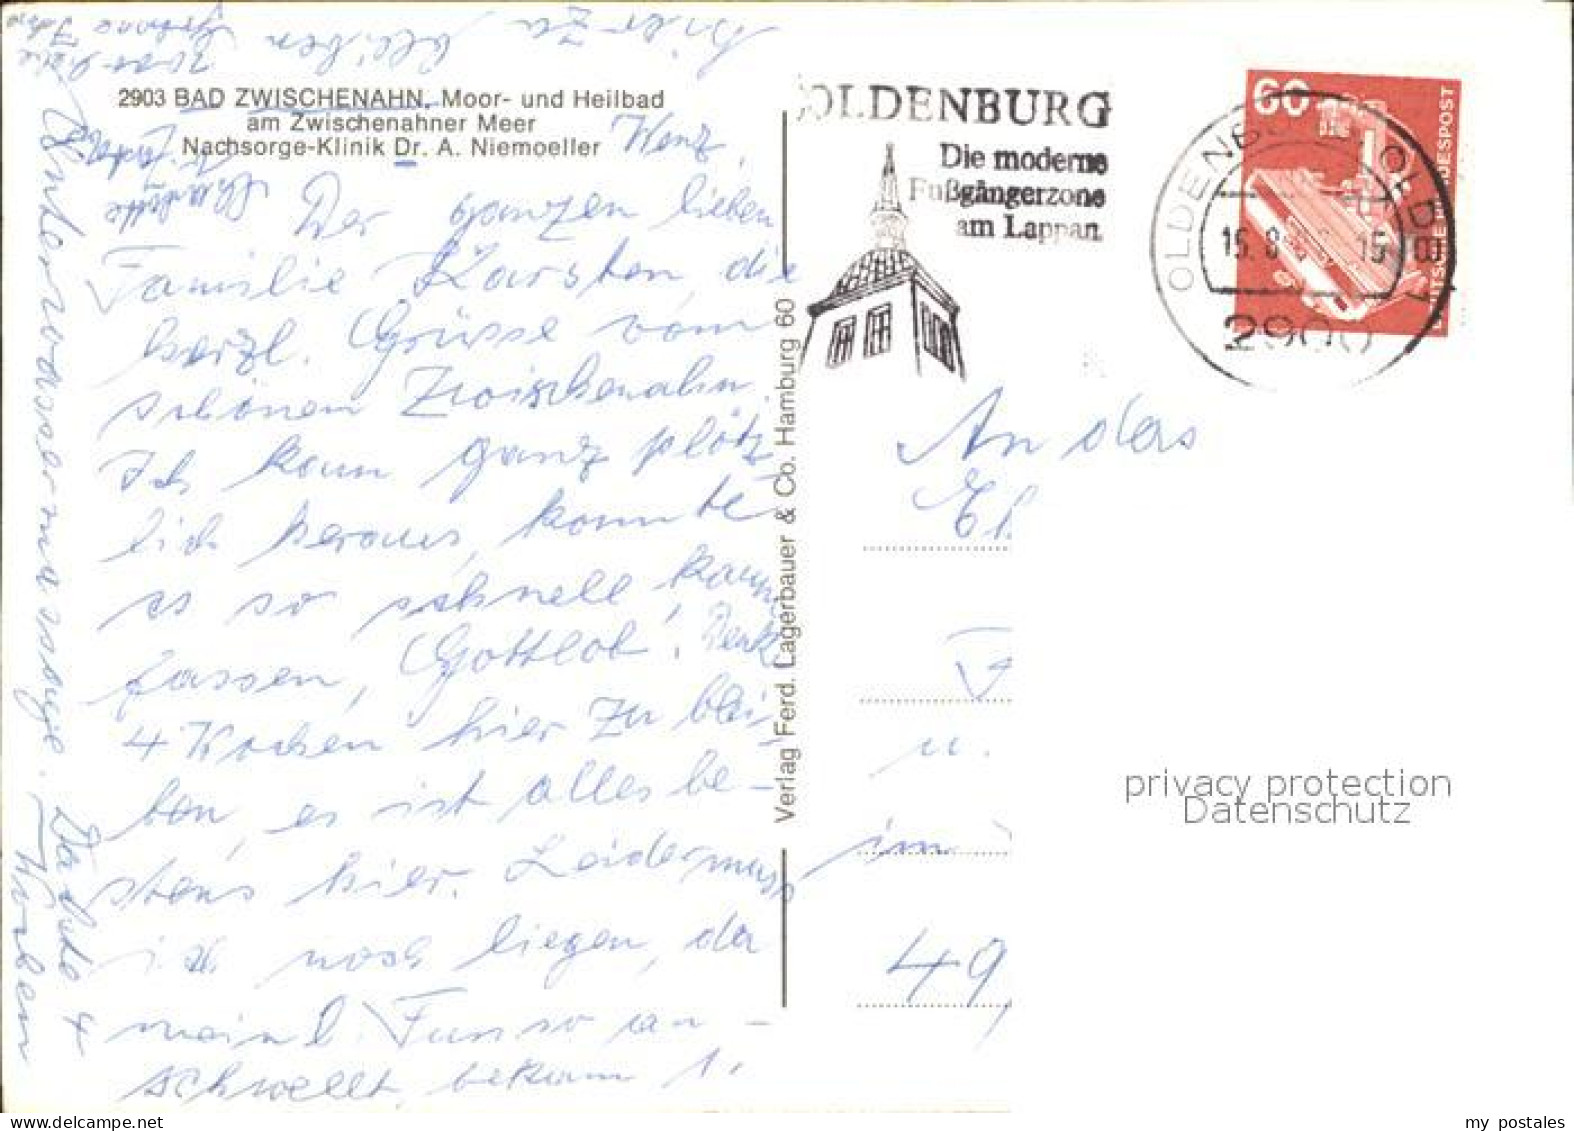 2903 BAD ZWISCHENAHN. Moor- und Heilbad
am Zwischenahner Meer
Nachsorge-Klinik Dr. A. Niemoeller
Der ganzen lieben
Familie Karsten, die
herzl. Grüsse vom
schönen Zwischenahn
Ich kam ganz plötz
lich heraus, konnte
es so schnell kaum
fassen, Gottlob! Denk
4 Wochen hier zu blei-
ben, es ist alles be-
stens hier. Leider muss
ich noch liegen, da
mein l. Fuss so an-
schwellt, bekam 1.
Unterwassermassage. Dachte 4
Wochen
hier zu bleiben
Verlag Ferd. Lagerbauer & Co. Hamburg 60
OLDENBURG
Die moderne
Fußgängerzone
am Lappan
60
DEUTSCHE BUNDESPOST
OLDENBURG, OLDB
2900
An das
u.
im
49
privacy protection
Datenschutz
my postales